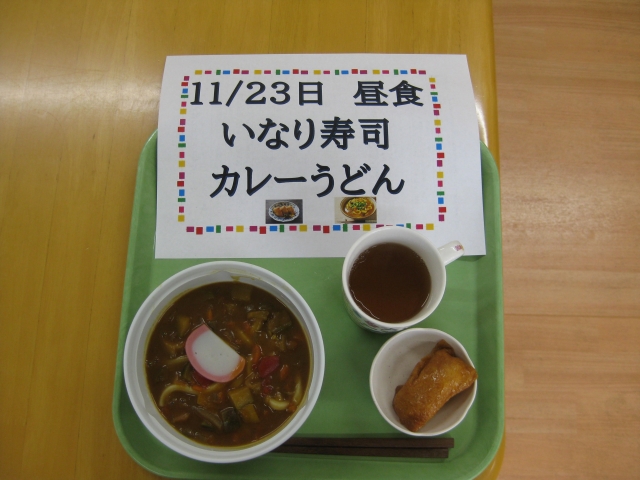 11/23日 昼食
いなり寿司
カレーうどん